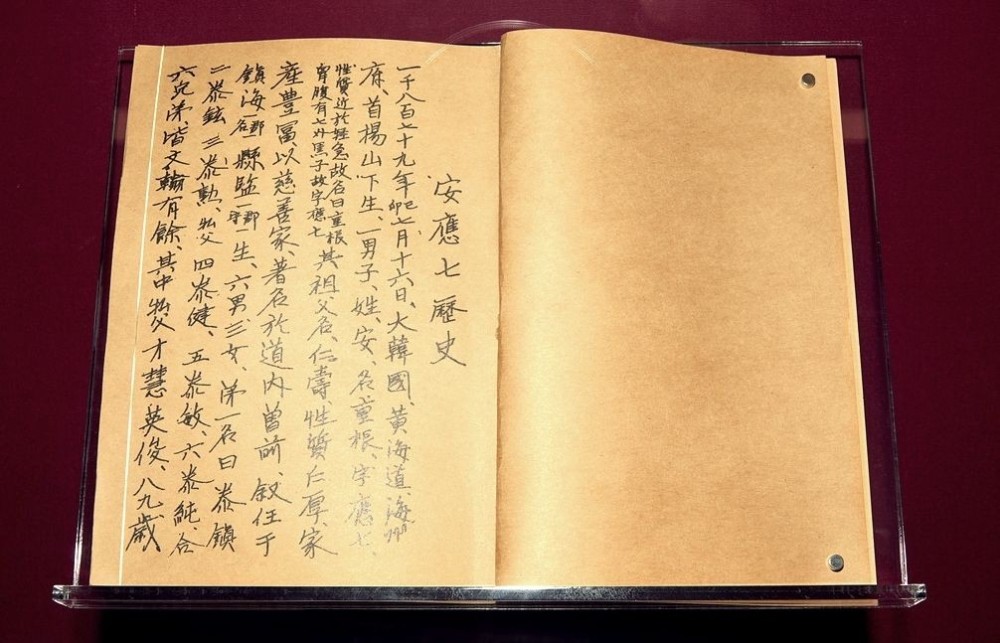 安應七歷史
一千八百七十九年己卯七月十六日、大韓國、黃海道、海州
府、首楊山下生、一男子、姓、安、名、重根、字、應七、
性質近於輕急故名曰重根
胷腹有七介黑子故字應七
其祖父名、仁壽、性質仁厚、家
產豊富、以慈善家、著名於道內曾前、叙任于
鎮海一郡名一縣監一郡守一生、六男三女、第一名曰泰鎮
二泰鉉 三泰勳、父 四泰健、五泰敏、六泰純、合
六兄弟、皆文翰有餘、其中父才慧英俊、八九歲、